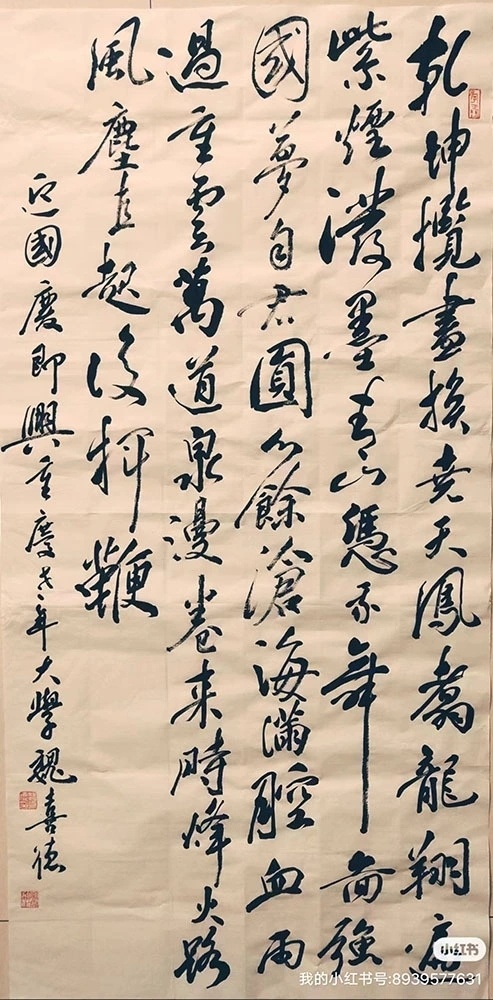 乾坤攬畫換堯天鳳翥龍翔處
紫煙潑墨青山憑我舞富強
國夢自君圓心餘滄海滿腔血雨
過重雲萬道泉漫卷来時烽火路
風塵直起復揮鞭
迎國慶即興重慶老年大學魏喜德
小红书
我的小红书号:8939577631